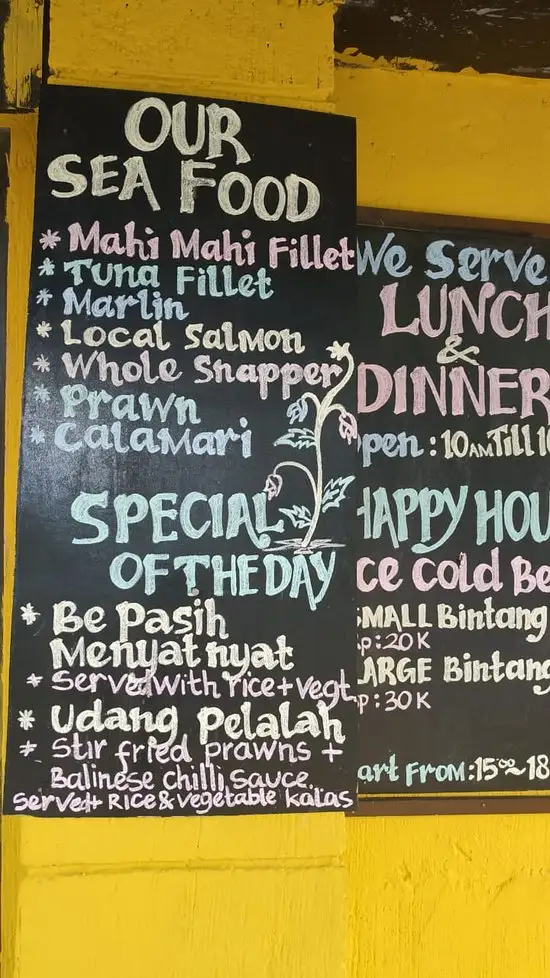 OUR
SEA FOOD
* Mahi Mahi Fillet
* Tuna Fillet
* Marlin
* Local Salmon
* Whole Snapper
* Prawn
* Calamari
SPECIAL
OF THE DAY
* Be Pasih
Menyat nyat
* Served with rice + vegt
* Udang Pelalah
* Stir fried prawns +
Balinese chilli sauce.
Served + Rice & vegetable kalas
We Serve
LUNCH
&
DINNER
pen : 10 AM Till 1
HAPPY HOU
ce Cold Be
SMALL Bintang
p : 20 K
LARGE Bintang
p : 30 K
art From : 15⁰⁰ ~ 18